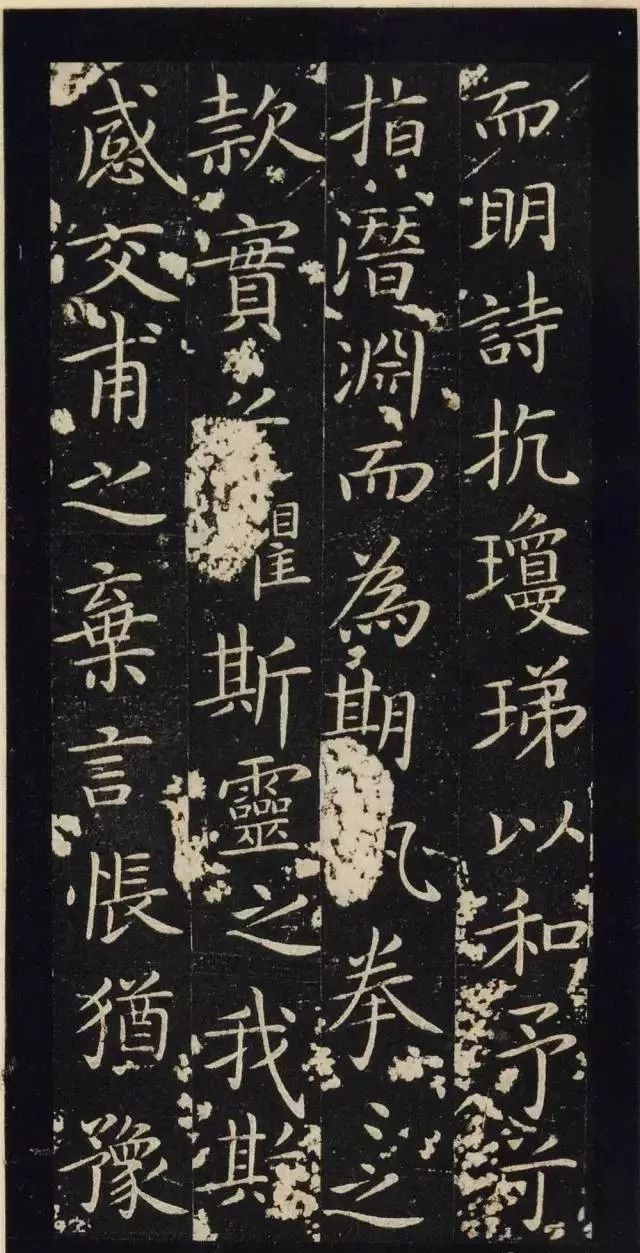 而明詩抗瓊珶以和予兮
指潛淵而為期拳〻之
款實瞿斯靈之我
感交甫之棄言悵猶豫